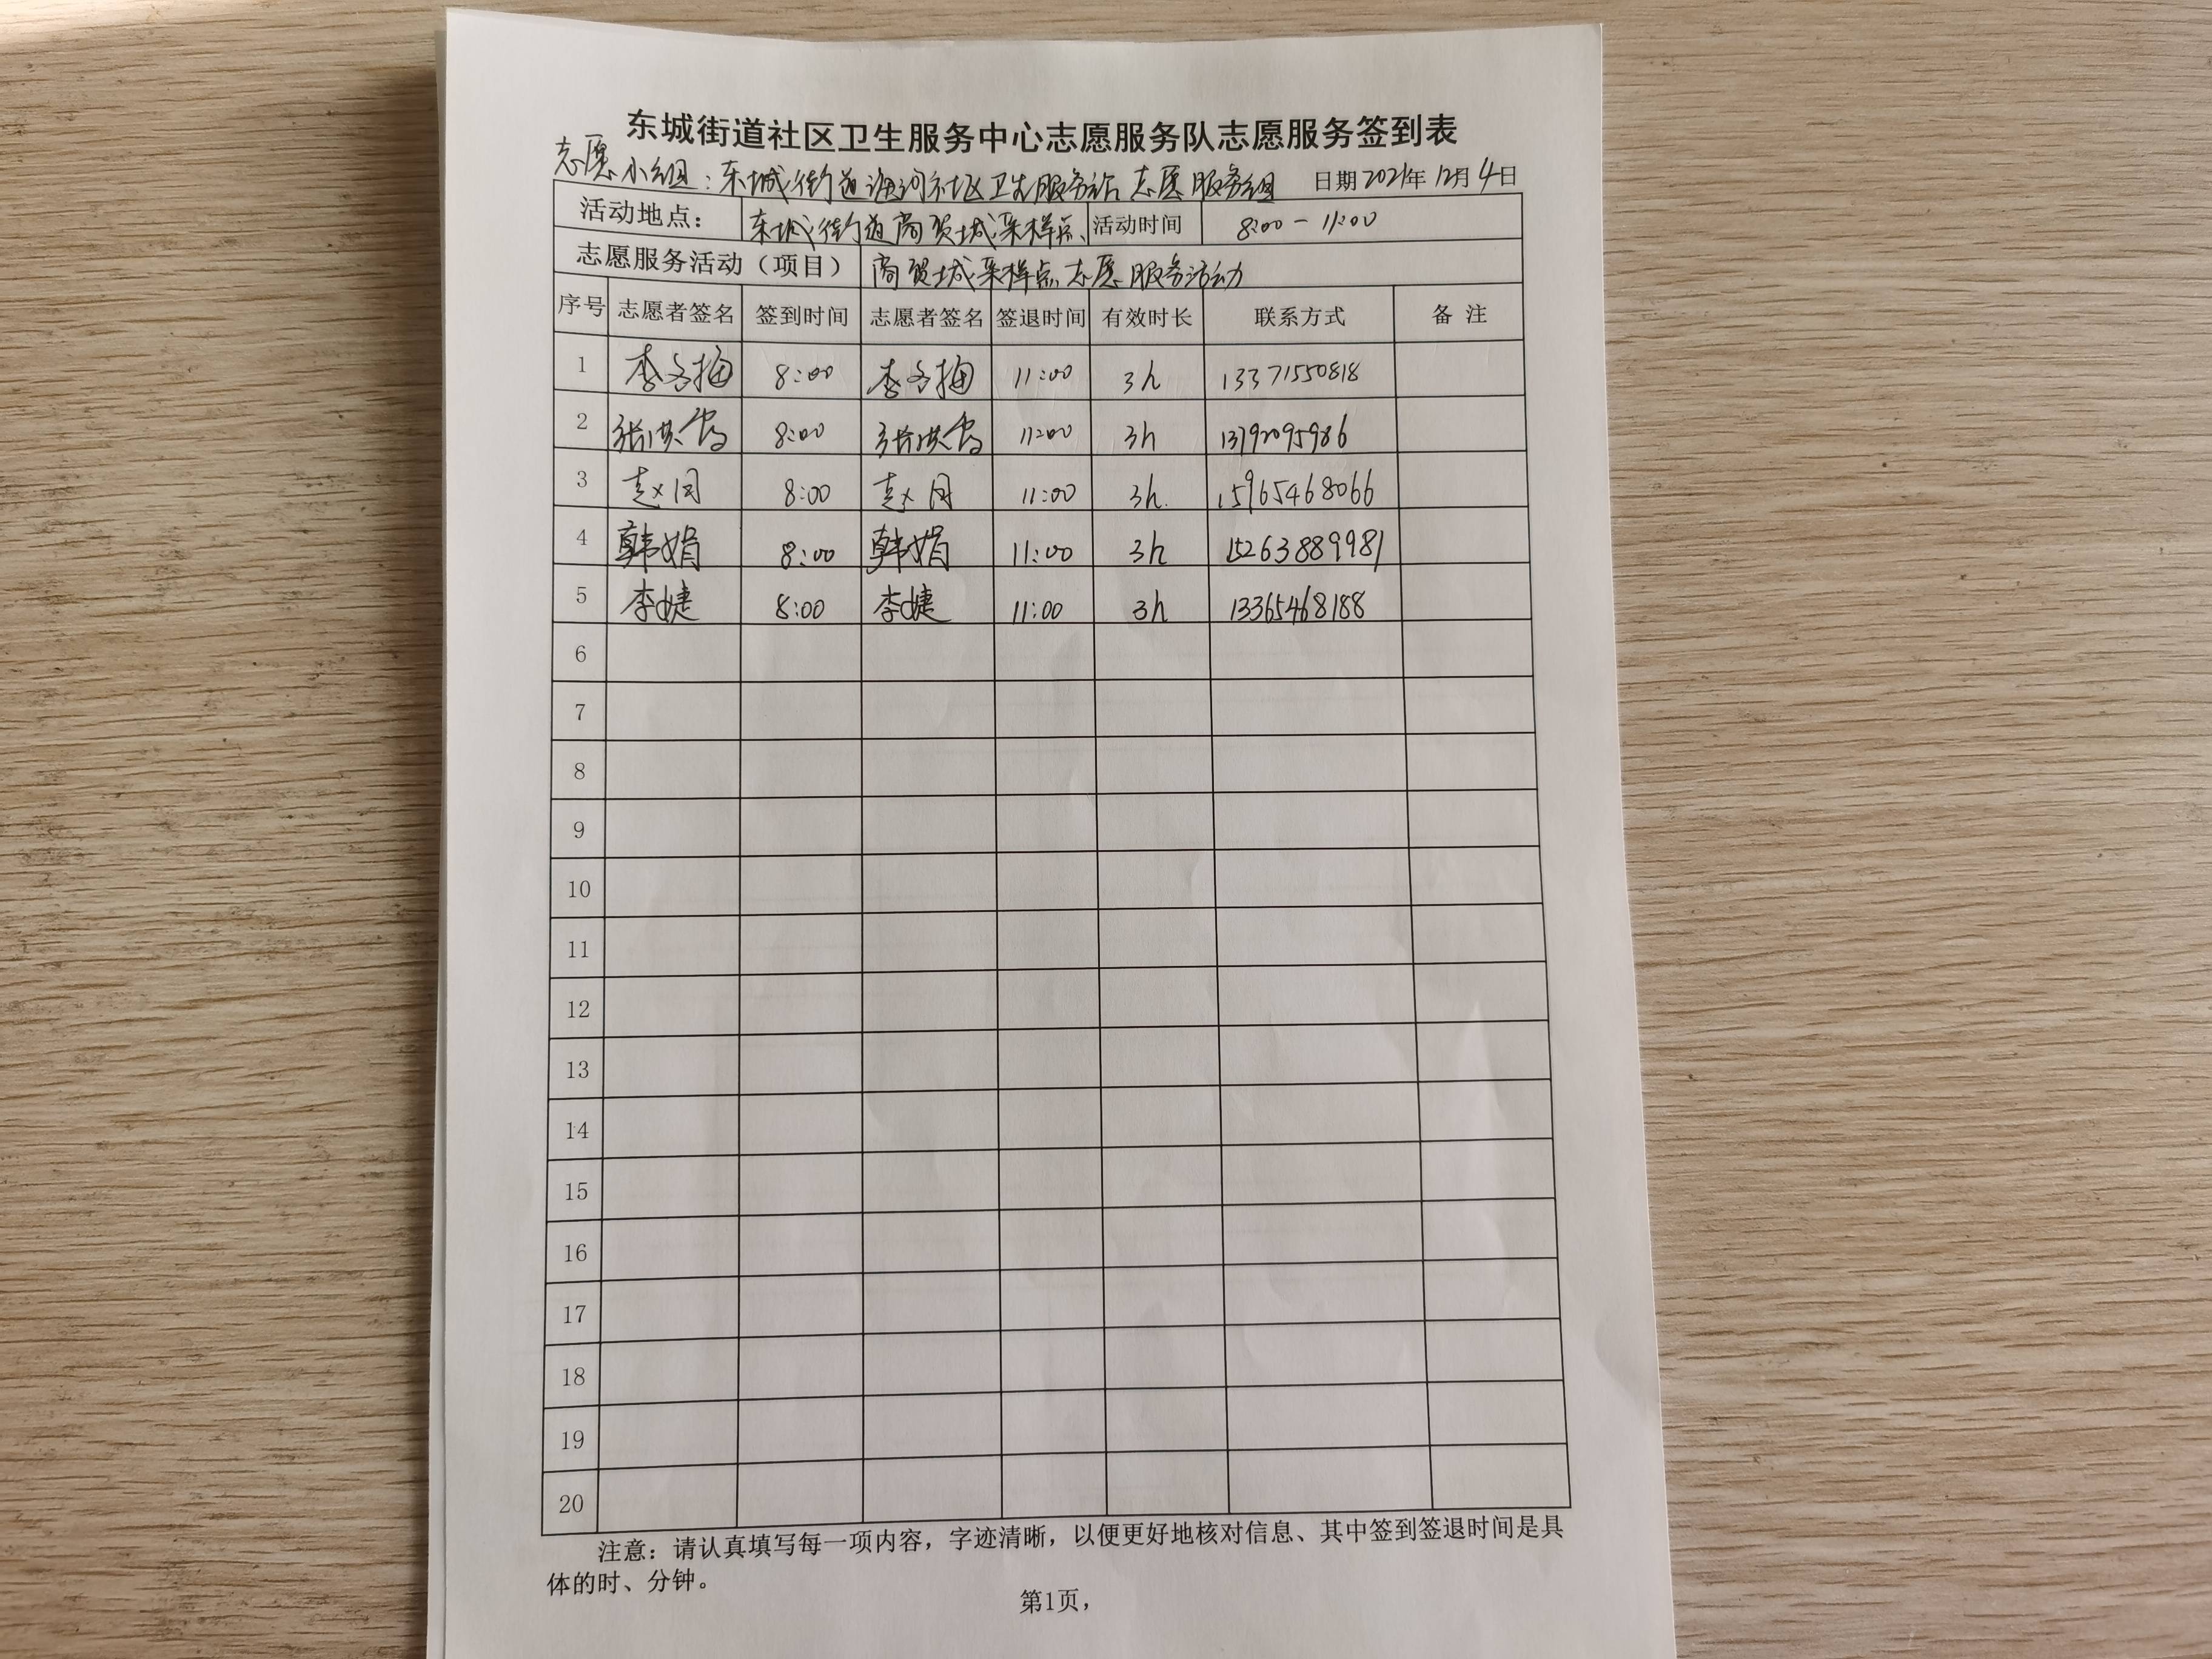 东城街道社区卫生服务中心志愿服务队志愿服务签到表
志愿小组：东城街道海河社区卫生服务站志愿服务组 日期2021年12月4日
活动地点： 东城街道商贸城采样点 活动时间 8:00-11:00
志愿服务活动（项目） 商贸城采样点志愿服务活动
序号 志愿者签名 签到时间 志愿者签名 签退时间 有效时长 联系方式 备注
1 李冬梅 8:00 李冬梅 11:00 3h 13371550818
2 张洪 8:00 张洪 11:00 3h
3 赵 8:00 赵 11:00 3h. 15965468066
4 韩娟 8:00 韩娟 11:00 3h 15263889981
5 李婕 8:00 李婕 11:00 3h 13365468188
6
7
8
9
10
11
12
13
14
15
16
17
18
19
20
注意：请认真填写每一项内容，字迹清晰，以便更好地核对信息、其中签到签退时间是具
体的时、分钟。
第1页，